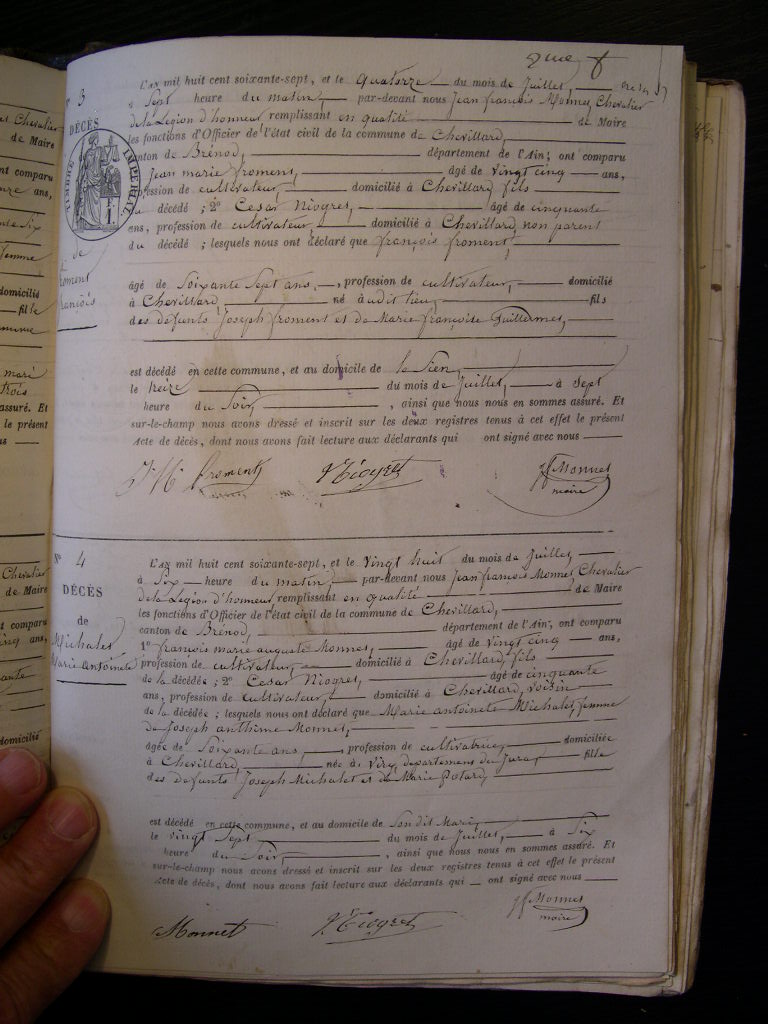 2me
N° 3
DÉCÈS
TIMBRE IMPÉRIAL
de
froment
françois
L'AN mil huit cent soixante-sept, et le Quatorze du mois de Juillet,
à Sept heure du matin, par-devant nous Jean françois Monnet, Chevalier
de la Légion d'honneur remplissant en qualité de Maire
les fonctions d'Officier de l'état civil de la commune de Chevillard,
canton de Brénod, département de l'Ain, ont comparu
Jean marie froment, âgé de vingt cinq ans,
profession de cultivateur, domicilié à Chevillard, fils
du décédé ; 2° Cesar Niogret, âgé de cinquante
ans, profession de cultivateur, domicilié à Chevillard, non parent
du décédé ; lesquels nous ont déclaré que françois froment,
âgé de Soixante Sept ans, profession de cultivateur, domicilié
à Chevillard, né audit lieu, fils
des défunts Joseph froment et de Marie françoise Guillermet,
est décédé en cette commune, et au domicile de le Sien,
le treize du mois de Juillet, à sept
heure du Soir, ainsi que nous nous en sommes assuré. Et
sur-le-champ nous avons dressé et inscrit sur les deux registres tenus à cet effet le présent
acte de décès, dont nous avons fait lecture aux déclarants qui ont signé avec nous
J M froment Niogret Jf Monnet
maire
N° 4
DÉCÈS
de
Michalet
Marie Antoinete
L'AN mil huit cent soixante-sept, et le Vingt huit du mois de Juillet,
à Six heure du matin, par-devant nous Jean françois Monnet Chevalier
de la Légion d'honneur remplissant en qualité de Maire
les fonctions d'Officier de l'état civil de la commune de Chevillard,
canton de Brénod, département de l'Ain, ont comparu
1° françois marie auguste Monnet, âgé de vingt cinq ans,
profession de cultivateur, domicilié à Chevillard, fils
de la décédée ; 2° Cesar Niogret, âgé de cinquante
ans, profession de cultivateur, domicilié à Chevillard, voisin
de la décédée ; lesquels nous ont déclaré que Marie antoinete Michalet, femme
de Joseph anthime Monnet,
âgée de Soixante ans, profession de cultivatrice, domiciliée
à Chevillard, née à Viry, département du Jura, fille
des défunts Joseph Michalet et de Marie
est décédée en cette commune, et au domicile de Son dit Mari,
le vingt Sept du mois de Juillet, à Six
heure du Soir, ainsi que nous nous en sommes assuré. Et
sur-le-champ nous avons dressé et inscrit sur les deux registres tenus à cet effet le présent
acte de décès, dont nous avons fait lecture aux déclarants qui ont signé avec nous
Jf Monnet
maire
Monnet Niogret